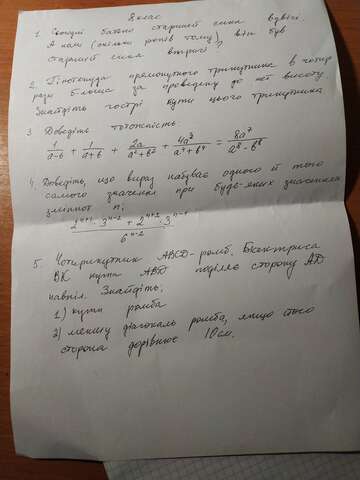 8 клас
1. Сьогодні батько старший сина вдвічі.
А коли (скільки років тому) він був
старший сина втричі?
2. Гіпотенуза прямокутного трикутника в чотири
рази більша за проведену до неї висоту
Знайдіть гострі кути цього трикутника
3. Доведіть тотожність:
1/(a-b) + 1/(a+b) + 2a/(a²+b²) + 4a³/(a⁴+b⁴) = 8a⁷/(a⁸-b⁸)
4. Доведіть, що вираз набуває одного й того
самого значення при будь-яких значеннях
змінної n:
(2ⁿ⁺¹ · 3ⁿ⁻² + 2ⁿ⁺² · 3ⁿ⁻¹)/6ⁿ⁻²
5. Чотирикутник ABCD - ромб. Бісектриса
BK кута ABD поділяє сторону AD
навпіл. Знайдіть:
1) кути ромба
2) меншу діагональ ромба, якщо його
сторона дорівнює 10см.